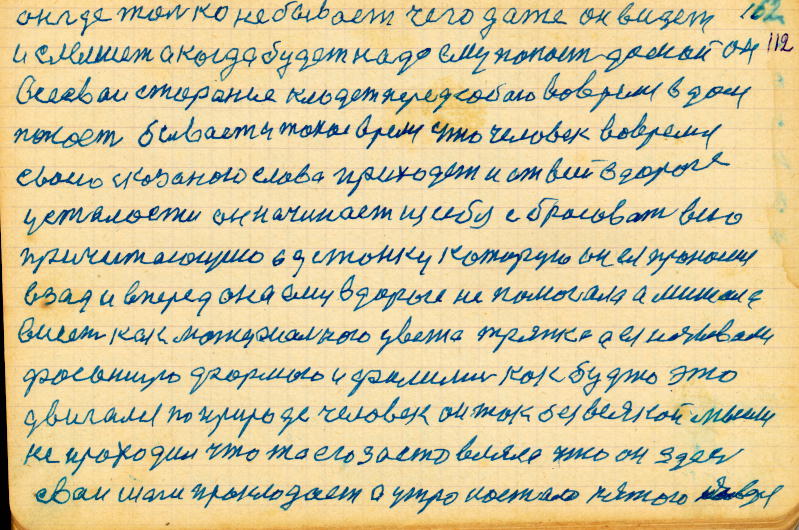 он где только не бывает чего даже он видет 162
и слышет а когда будет надо ему попост домой он 112
все сваи старание кладет перед собою вовремя в дом
попост бывает и такое время что человек вовремя
своего сказаного слова приходет и от всей в дороге
усталости он начинает из себя сбрасоват всю
причитающую одстонку которую он ей
взад и вперед она ему в дороге не помогала а мишала
висет как материалного цвета тряпка а ей называли
формою и фамилия как будто это
двигался по природе человек он так без всякой мысли
не проходил что та его заставляла что он здесь
сваи шаги прокладает а утро настало пятого